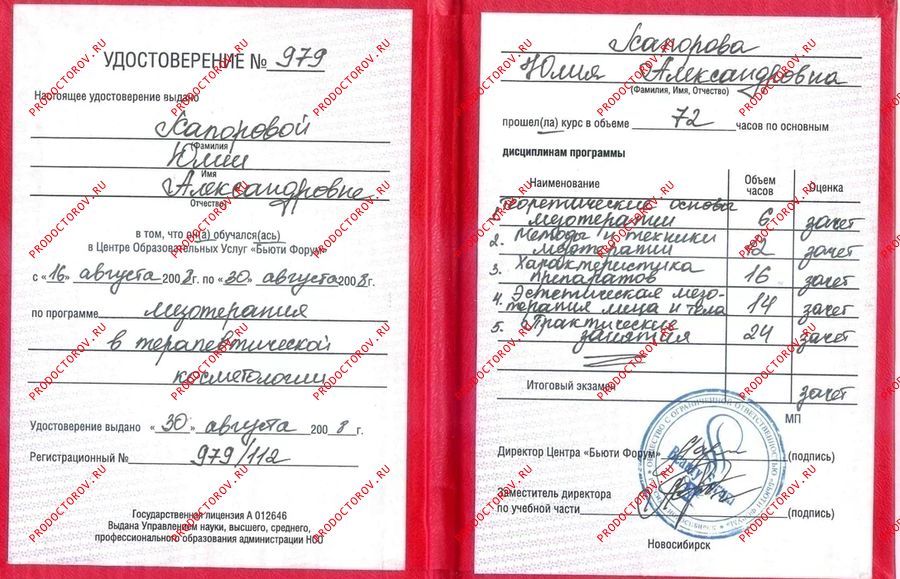 УДОСТОВЕРЕНИЕ № 979
Настоящее удостоверение выдано
Хапоровой
(Фамилия
Юлии
Имя
Александровне
Отчество)
в том, что он(а) обучался(ась)
в Центре Образовательных Услуг «Бьюти Форум»
с «16» августа 2008г. по «30» августа 2008г.
по программе мезотерапия
в терапевтической
косметологии
Удостоверение выдано «30» августа 2008г.
Регистрационный № 979/112
Государственная лицензия А 012646
Выдана Управлением науки, высшего, среднего,
профессионального образования администрации НСО
Хапорова
Юлия Александровна
(Фамилия, Имя, Отчество)
прошел(ла) курс в объеме 72 часов по основным
дисциплинам программы
Наименование Объем часов Оценка
1. Теоретические основы
мезотерапии 6 зачет
2. Методы и техники
мезотерапии 12 зачет
3. Характеристика
препаратов 16 зачет
4. Эстетическая мезо-
терапия лица и тела 14 зачет
5. Практические
занятия 24 зачет
Итоговый экзамен зачет
МП
Директор Центра «Бьюти Форум» (подпись)
Заместитель директора
по учебной части (подпись)
Новосибирск
ОБЩЕСТВО С ОГРАНИЧЕННОЙ ОТВЕТСТВЕННОСТЬЮ
PRODOCTOROV.RU